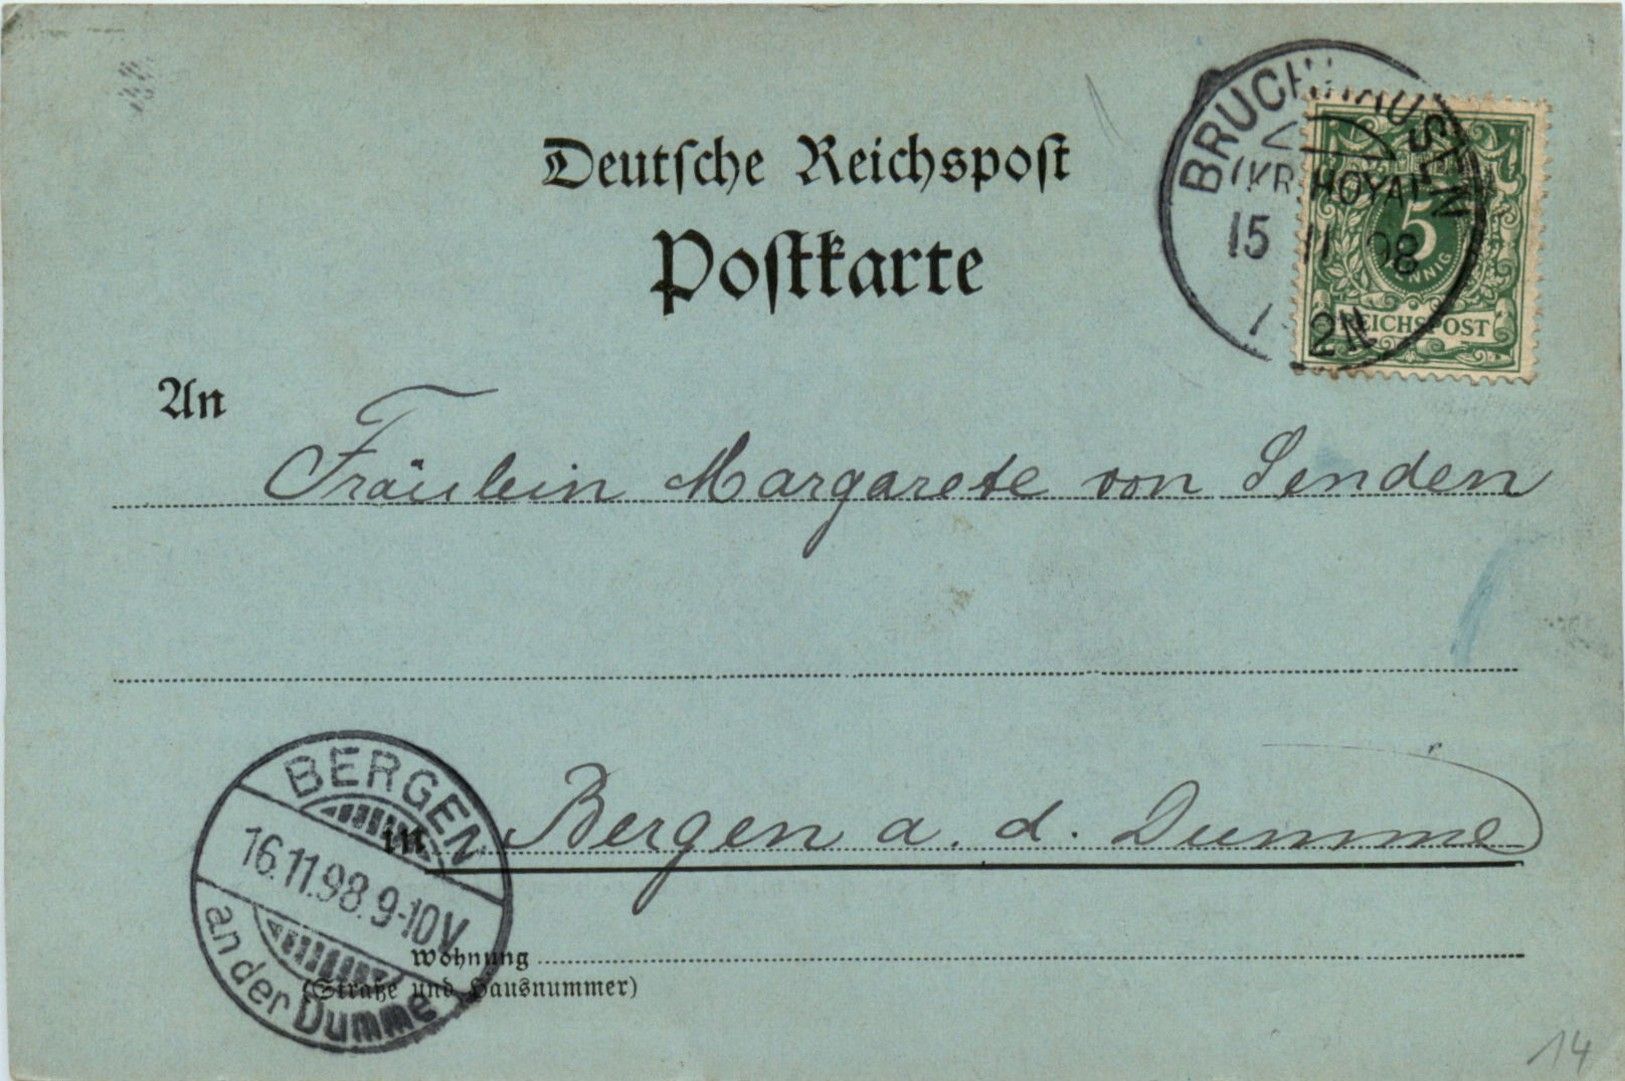 Deutsche Reichspost
Postkarte
BRUCHHAUSEN
(KR. HOYA)
15 11 98
2N
5
PFENNIG
REICHSPOST
An
Fräulein Margarete von Senden
in Bergen a. d. Dumme
BERGEN
16.11.98.9-10V
an der Dumme
Wohnung
(Straße und Hausnummer)
14